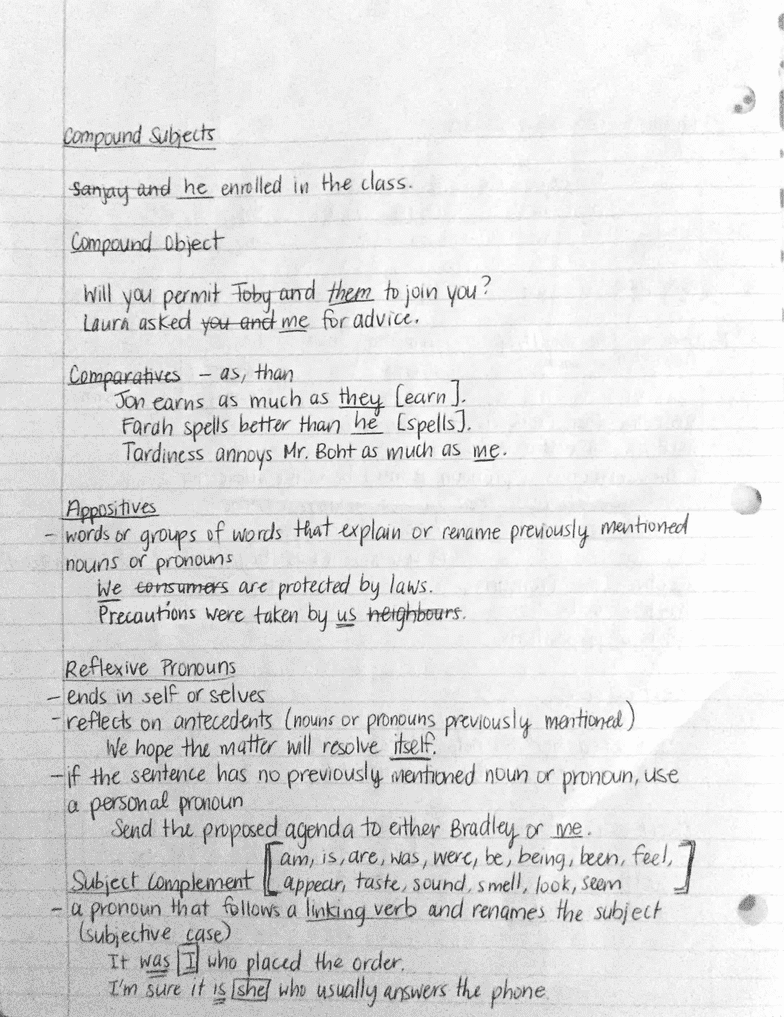 Compound Subjects
Sanjay and he enrolled in the class.
Compound Object
Will you permit Toby and them to join you?
Laura asked you and me for advice.
Comparatives - as, than
Jon earns as much as they [earn].
Farah spells better than he [spells].
Tardiness annoys Mr. Boht as much as me.
Appositives
- words or groups of words that explain or rename previously mentioned
nouns or pronouns
We consumers are protected by laws.
Precautions were taken by us neighbours.
Reflexive Pronouns
- ends in self or selves
- reflects on antecedents (nouns or pronouns previously mentioned)
We hope the matter will resolve itself.
- if the sentence has no previously mentioned noun or pronoun, use
a personal pronoun
Send the proposed agenda to either Bradley or me.
[am, is, are, was, were, be, being, been, feel,
Subject Complement appear, taste, sound, smell, look, seem]
- a pronoun that follows a linking verb and renames the subject
(subjective case)
It was I who placed the order.
I'm sure it is she who usually answers the phone.